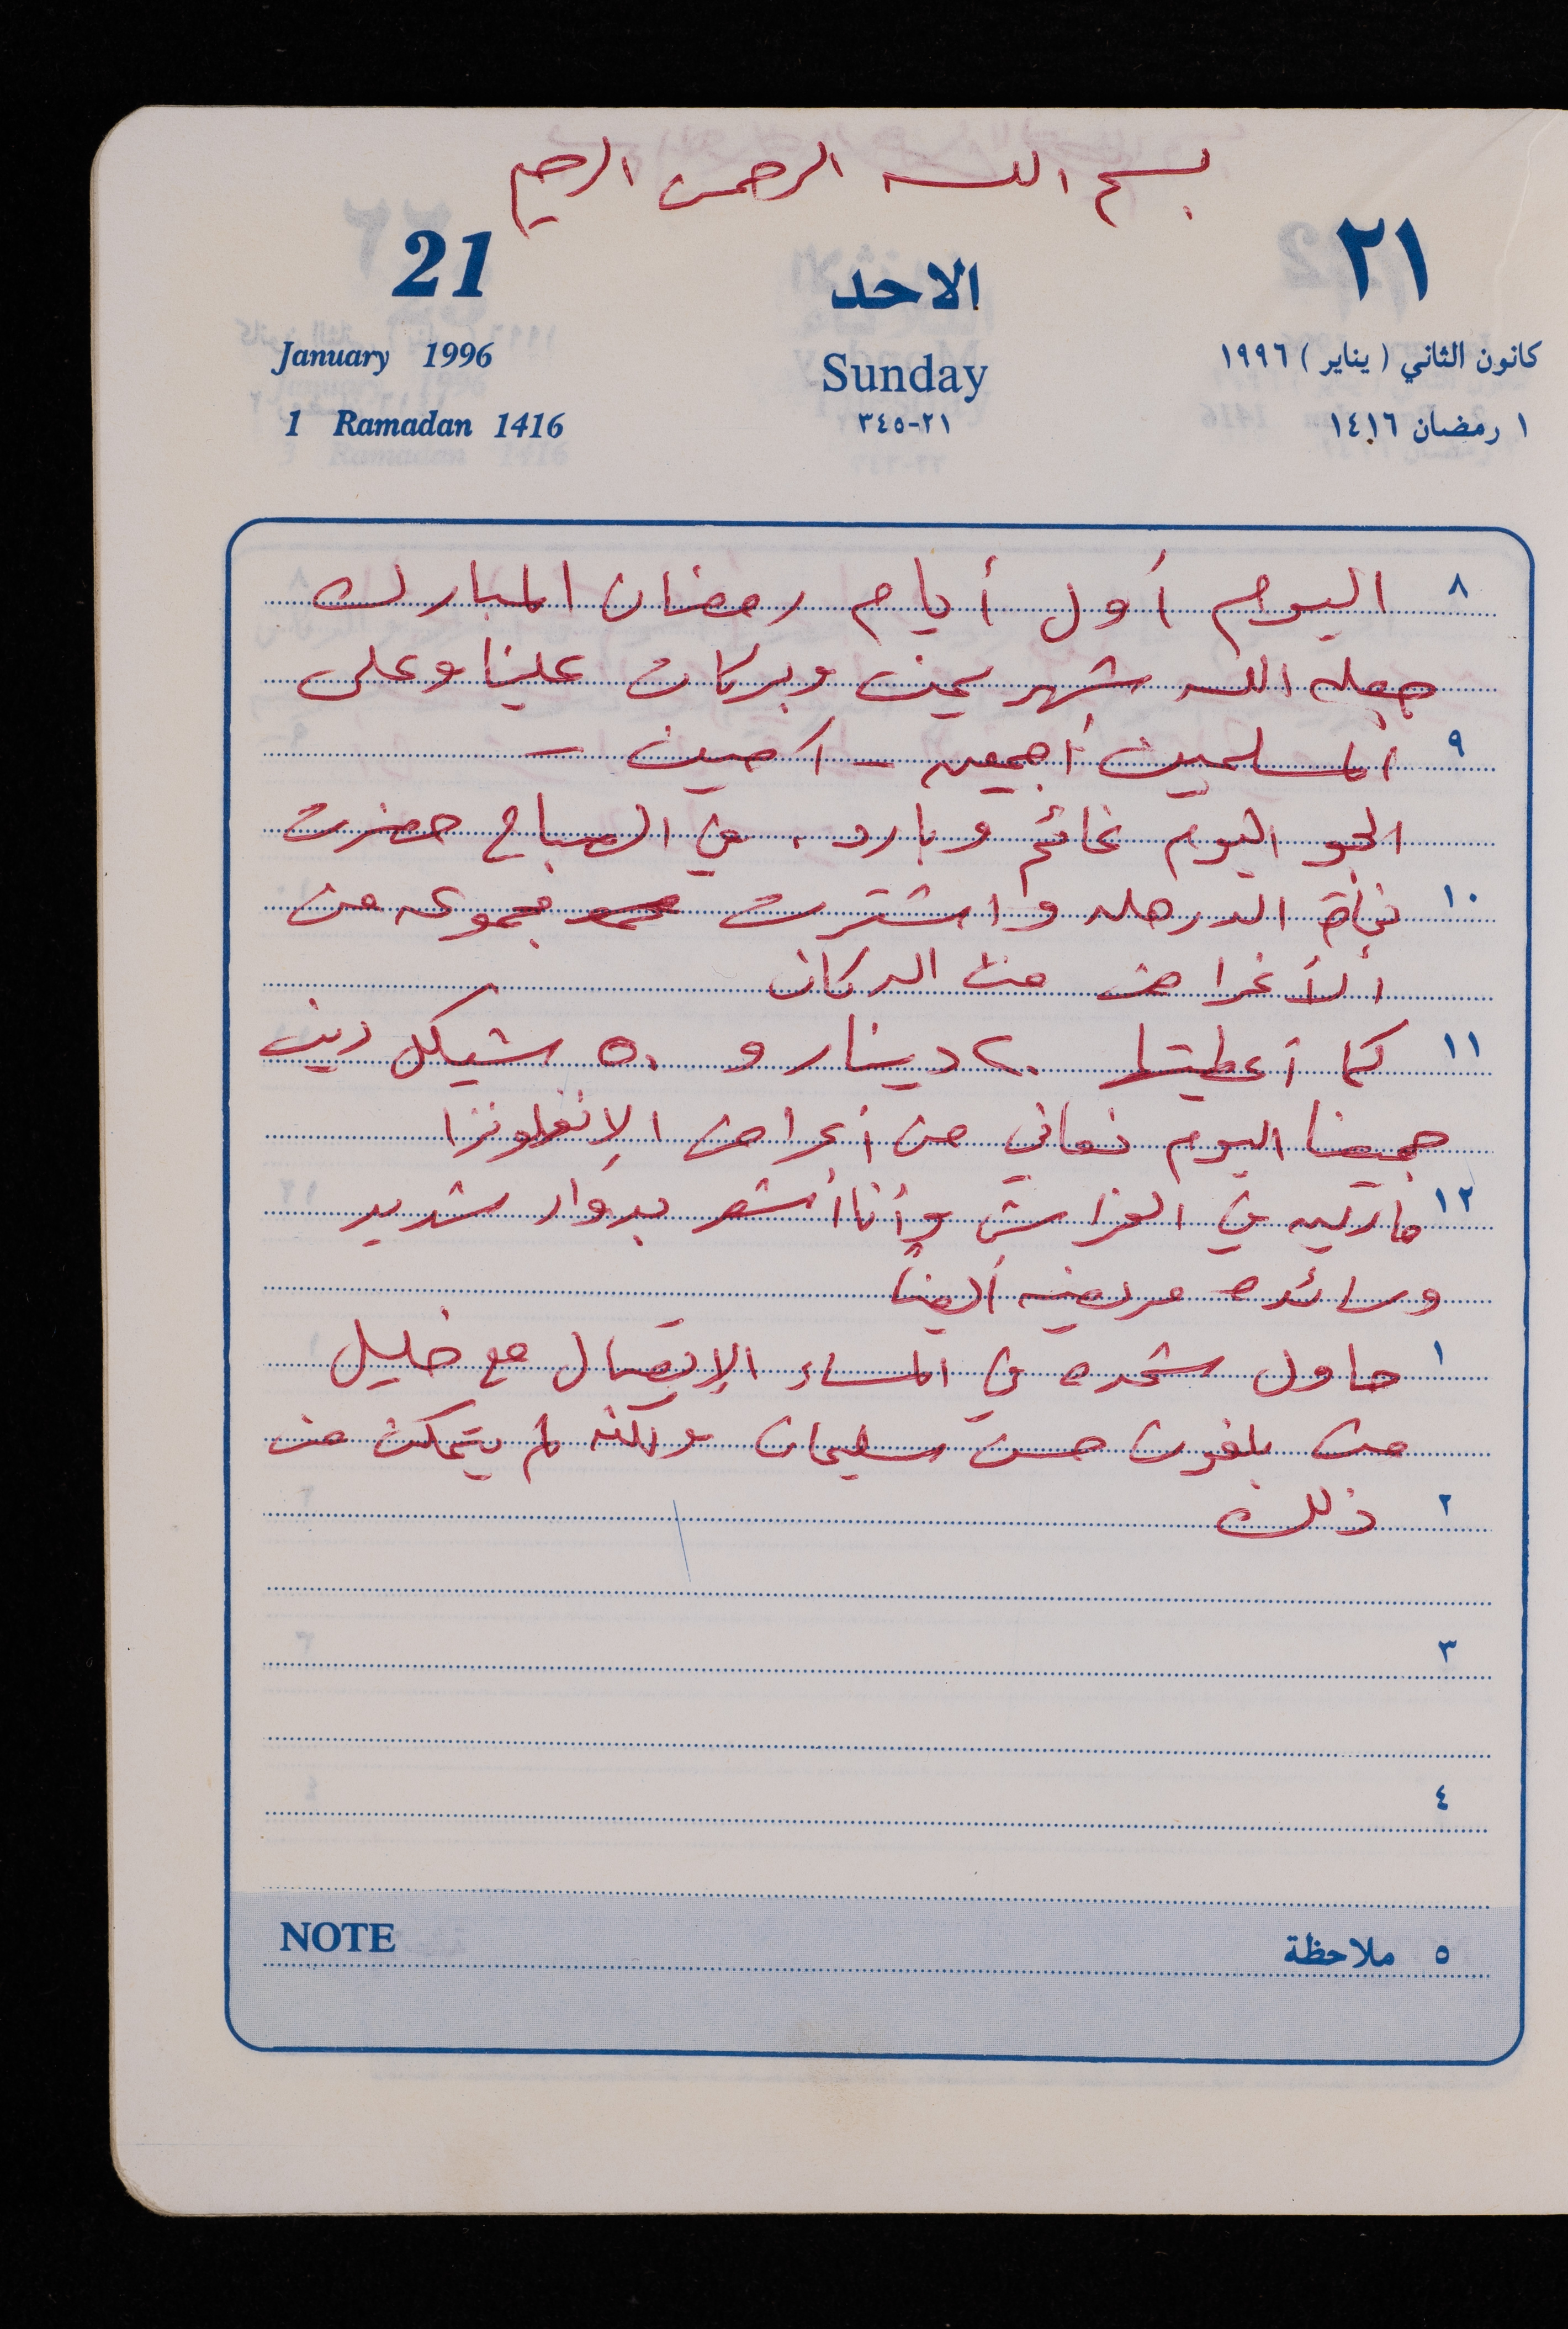 بسم الله الرحمن الرحيم
21 الاحد ٢١
January 1996 Sunday كانون الثاني ( يناير ) ١٩٩٦
1 Ramadan 1416 ٢١-٣٤٥ ١ رمضان ١٤١٦
٨ اليوم أول أيام رمضان المبارك
جعله الله شهر يمن وبركات علينا وعلى
٩ المسلمين أجمعين - آمين -
الجو اليوم غائم وبارد . في الصباح حضرت
١٠ نجاة واشترت مجموعه من
الأغراض من الدكان
١١ كما أعطيتها ٢٠ دينار و ٥٠ شيكل دين
جميعنا اليوم نعاني من أعراض الإنفلونزا
١٢ في الفراش وأنا أشعر بدوار شديد
وسائده مريضه أيضاً
١ حاول شحده في المساء الإتصال مع خليل
من بلفون حسن سليمان ولكنه لم يتمكن من
٢ ذلك
٣
٤
NOTE ٥ ملاحظة